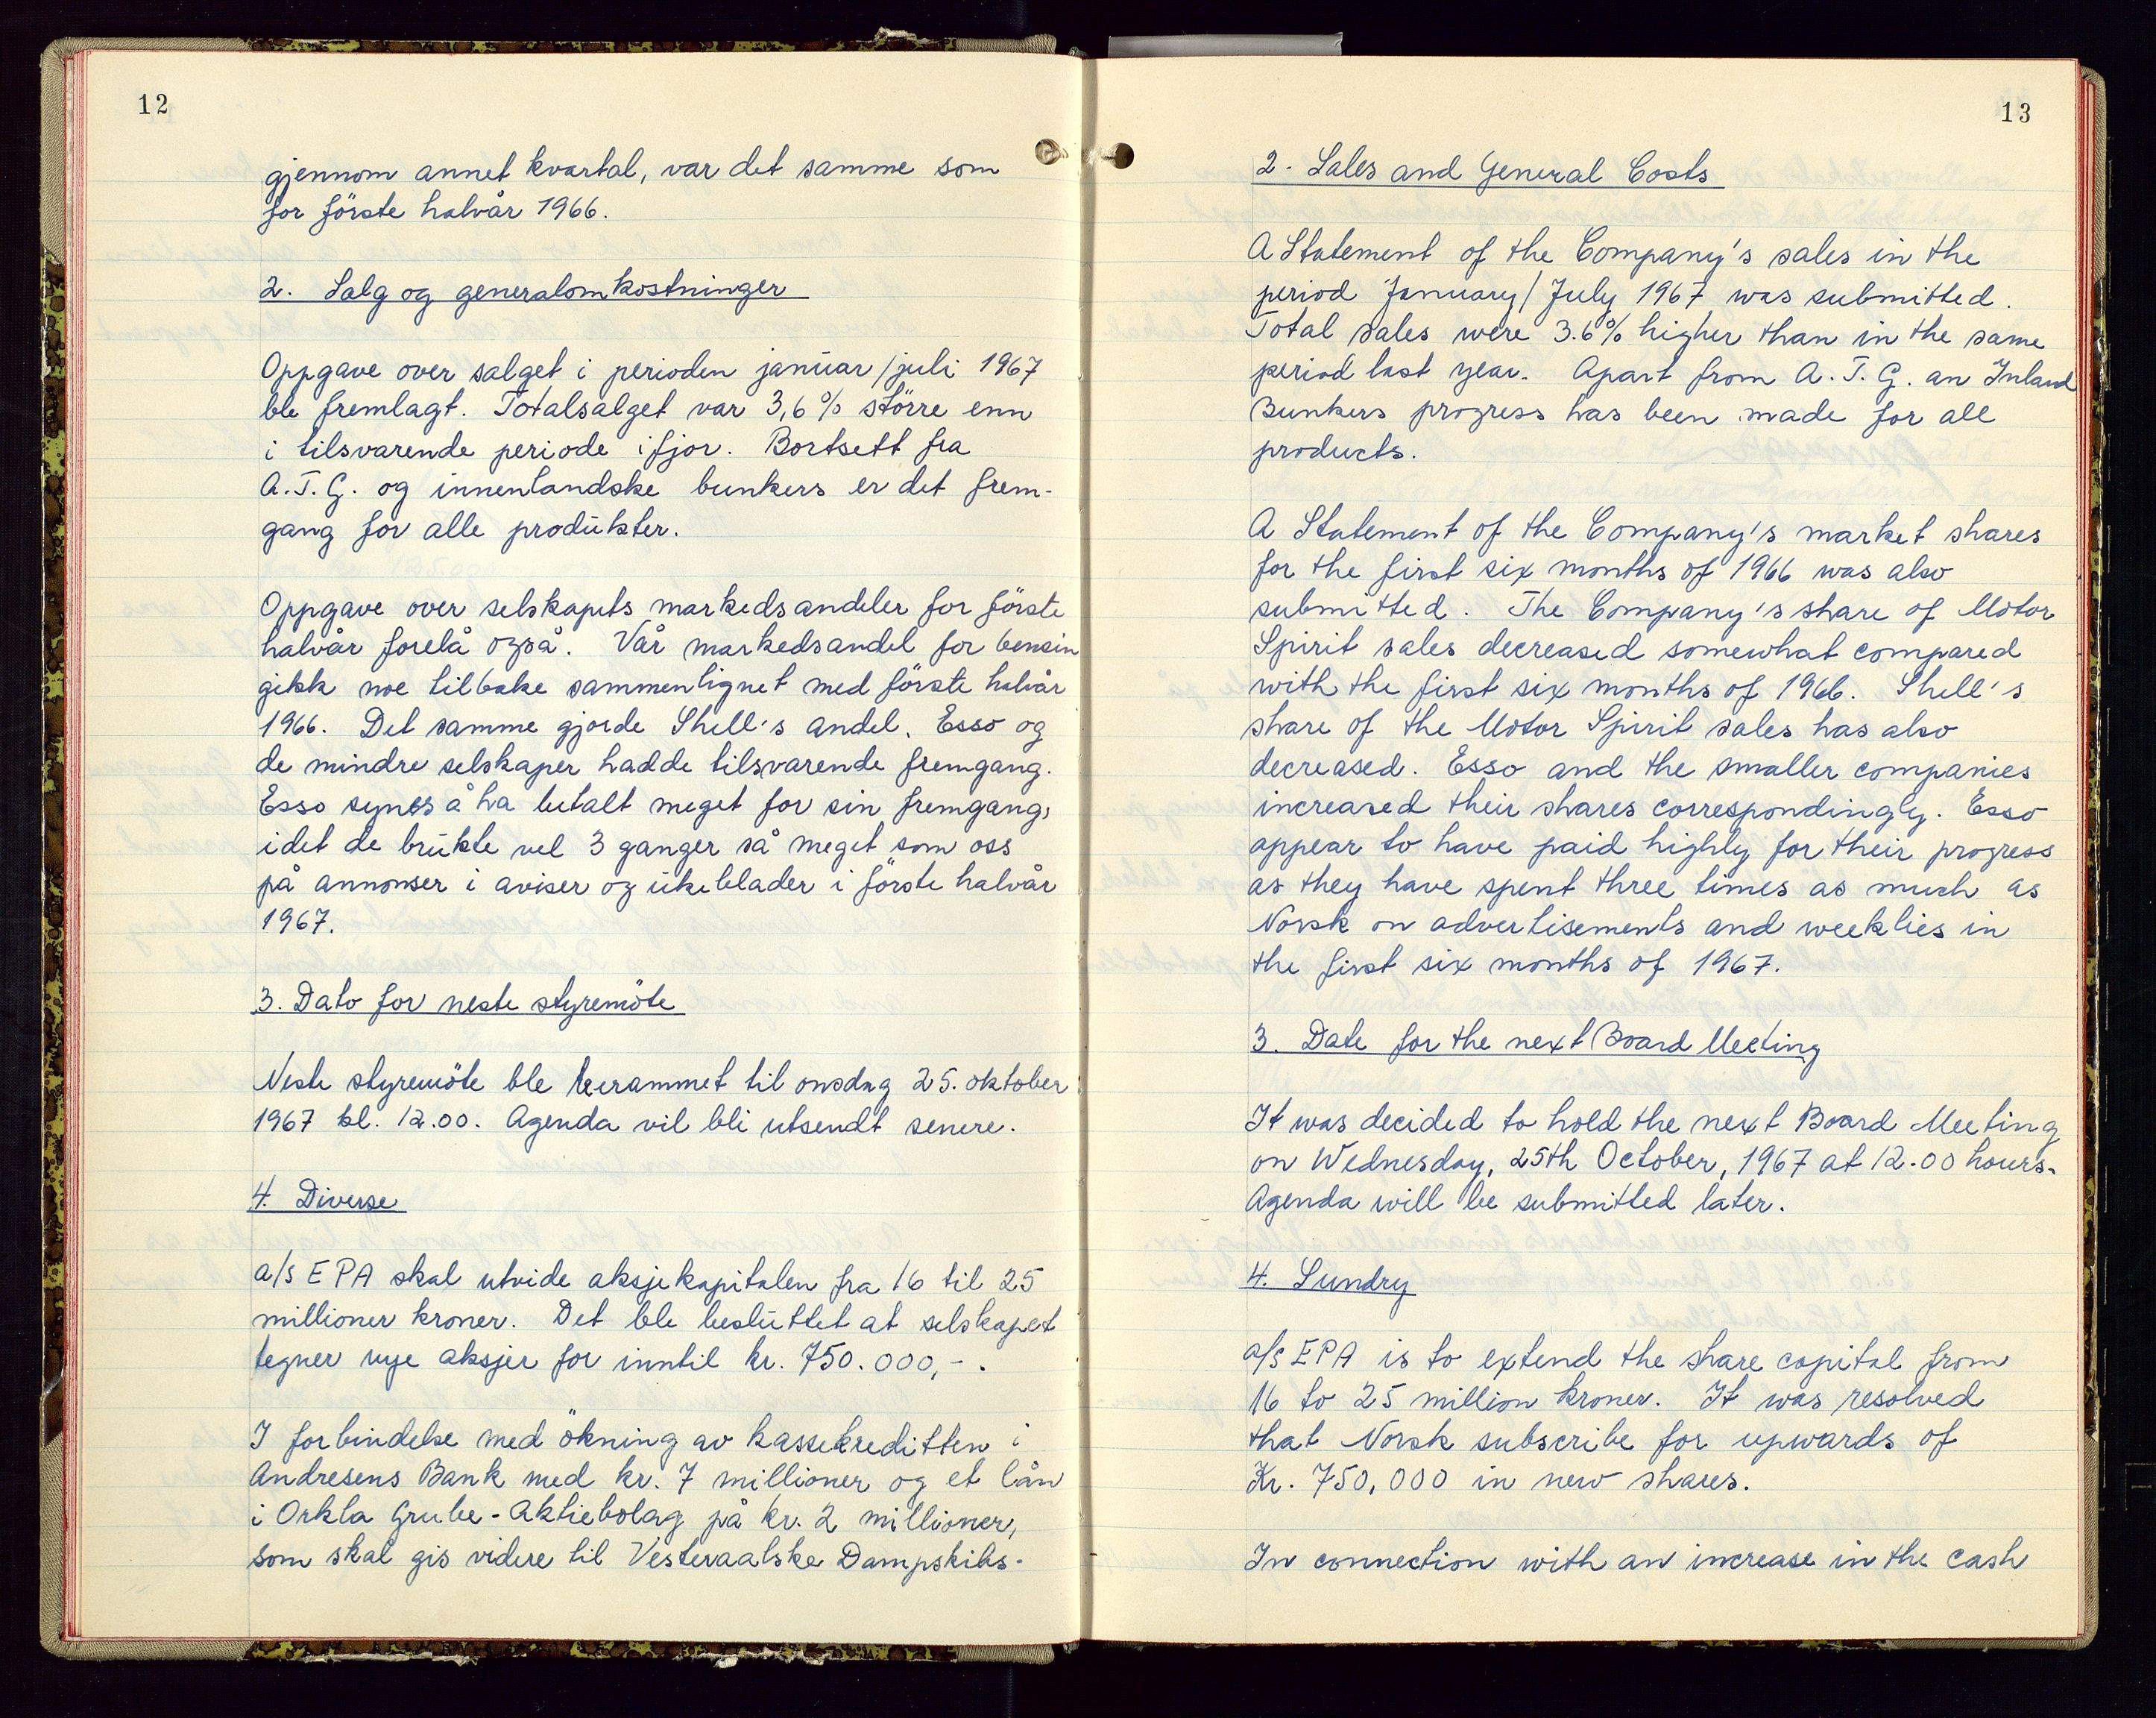 12
gjennom annet kvartal, var det samme som
for förste halvår 1966.
2. Salg og generalomkostninger
Oppgave over salget i perioden januar/juli 1967
ble fremlagt. Totalsalget var 3,6% större enn
i tilsvarende periode ifjor. Bortsett fra
A.T.G. og innenlandske bunkers er det frem-
gang for alle produkter.
Oppgave over selskapets markedsandeler for förste
halvår forelå også. Vår markedsandel for bensin
gikk noe tilbake sammenlignet med förste halvår
1966. Det samme gjorde Shell's andel. Esso og
de mindre selskaper hadde tilsvarende fremgang.
Esso synes å ha betalt meget for sin fremgang,
idet de brukte vel 3 ganger så meget som oss
på annonser i aviser og ukeblader i förste halvår
1967.
3. Dato for neste styremöte
Neste styremöte ble berammet til onsdag 25. oktober
1967 kl. 12.00. Agenda vil bli utsendt senere.
4. Diverse
a/s EPA skal utvide aksjekapitalen fra 16 til 25
millioner kroner. Det ble besluttet at selskapet
tegner nye aksjer for inntil kr. 750.000,-.
I forbindelse med ökning av kassekreditten i
Andresens Bank med kr. 7 millioner og et lån
i Orkla Grube-Aktiebolag på kr. 2 millioner,
som skal gis videre til Vesteraalske Dampskibs-
13
2. Sales and General Costs
A Statement of the Company's sales in the
period January/July 1967 was submitted.
Total sales were 3.6% higher than in the same
period last year. Apart from A.T.G. an Inland
Bunkers progress has been made for all
products.
A Statement of the Company's market shares
for the first six months of 1966 was also
submitted. The Company's share of Motor
Spirit sales decreased somewhat compared
with the first six months of 1966. Shell's
share of the Motor Spirit sales has also
decreased. Esso and the smaller companies
increased their shares correspondingly. Esso
appear to have paid highly for their progress
as they have spent three times as much as
Norsk on advertisements and weeklies in
the first six months of 1967.
3. Date for the next Board Meeting
It was decided to hold the next Board Meeting
on Wednesday, 25th October, 1967 at 12.00 hours.
Agenda will be submitted later.
4. Sundry
a/s EPA is to extend the share capital from
16 to 25 million kroner. It was resolved
that Norsk subscribe for upwards of
Kr. 750,000 in new shares.
In connection with an increase in the cash